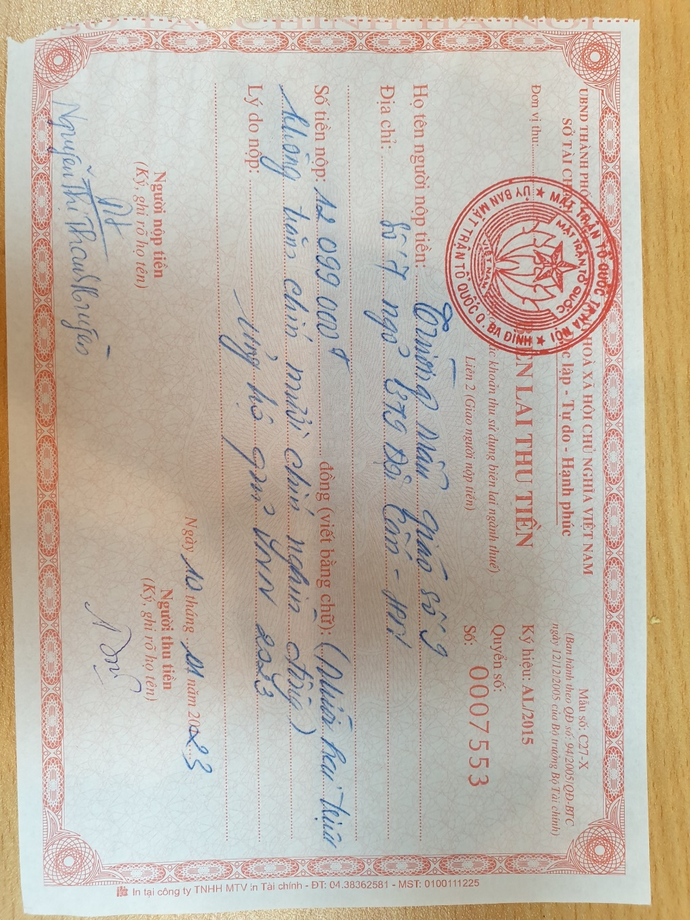 UBND THÀNH PHỐ
SỞ TÀI CH
HOÀ XÃ HỘI CHỦ NGHĨA VIỆT NAM
lập - Tự do - Hạnh phúc
Mẫu số: C27-X
(Ban hành theo QĐ số 94/2005/QĐ-BTC
ngày 12/12/2005 của Bộ trưởng Bộ Tài chính)
Đơn vị thu:
MẶT TRẬN TỔ QUỐC TP.HÀ NỘI
ỦY BAN MẶT TRẬN TỔ QUỐC Q. BA ĐÌNH
MẶT TRẬN TỔ QUỐC
VIỆT NAM
ÊN LAI THU TIỀN
khoản thu sử dụng biên lai ngành thuế)
Liên 2 (Giao người nộp tiền)
Ký hiệu: AL/2015
Quyển số:
Số: 0007553
Họ tên người nộp tiền: Trường Mẫu giáo số 9
Địa chỉ: Số 7 ngõ 379 Đội Cấn - HN
Số tiền nộp: 12 099 000đ đồng (viết bằng chữ): (Mười hai triệu
không trăm chín mươi chín nghìn đồng)
Lý do nộp: ủng hộ quỹ 2023
Ngày 10 tháng 11 năm 2023
Người nộp tiền
(Ký, ghi rõ họ tên)
Nguyễn Thị Thanh Huyền
Người thu tiền
(Ký, ghi rõ họ tên)
In tại công ty TNHH MTV in Tài chính - ĐT: 04.38362581 - MST: 0100111225